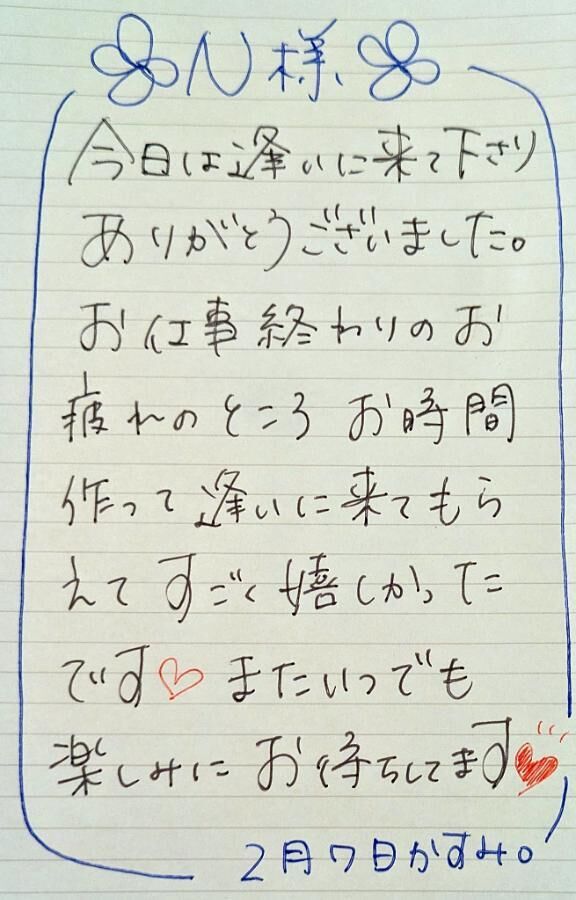 N様
今日は逢いに来て下さり
ありがとうございました。
お仕事終わりのお
疲れのところ お時間
作って逢いに来てもら
えてすごく嬉しかった
です♡ またいつでも
楽しみにお待ちしてます♥
2月7日かすみ。